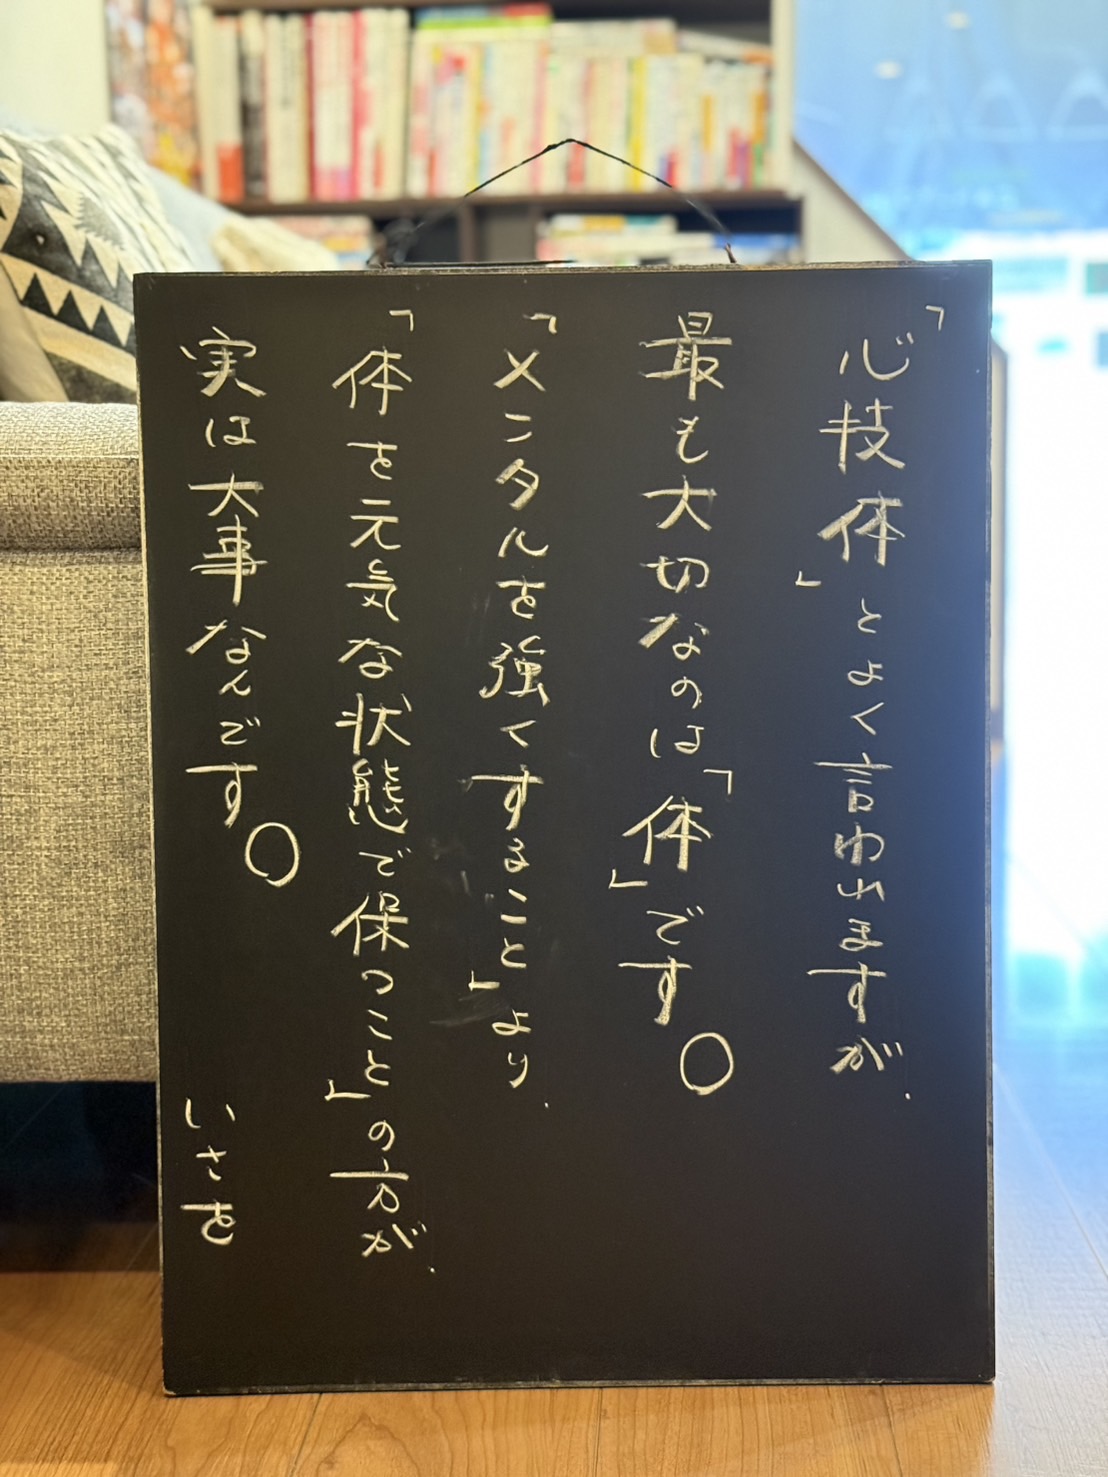 「心技体」とよく言われますが、
最も大切なのは「体」です。
「メンタルを強くすること」より、
「体を元気な状態で保つこと」の方が、
実は大事なんです。
いさを